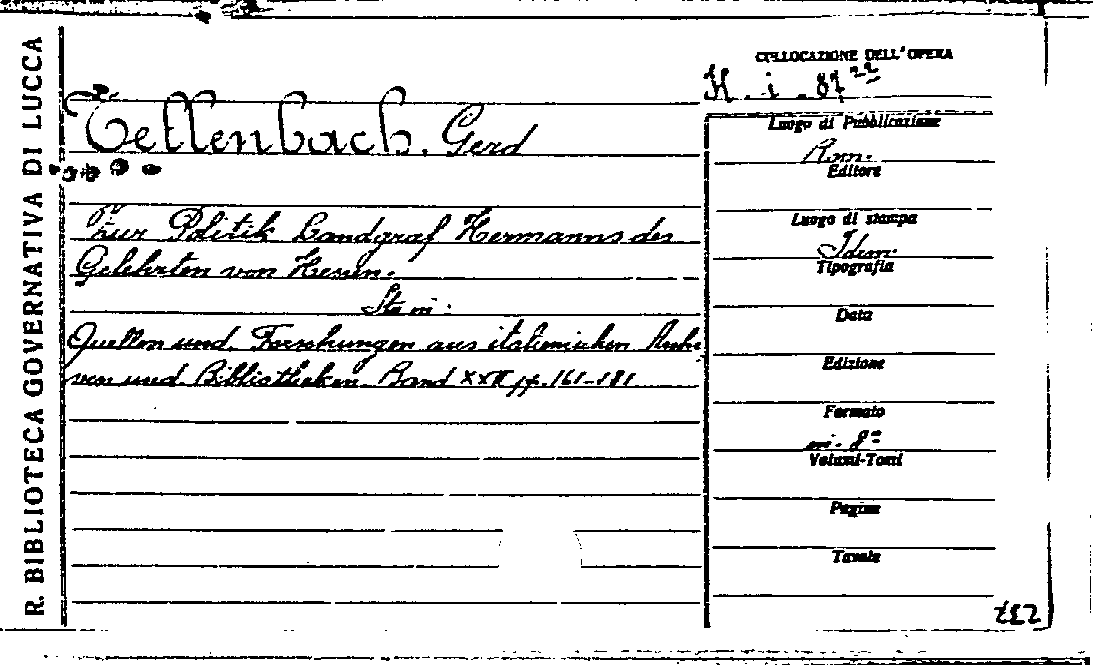 R. BIBLIOTECA GOVERNATIVA DI LUCCA
COLLOCAZIONE DELL'OPERA
H. i. 87 22
Tellenbach. Gerd
Zur Politik Landgraf Hermanns des
Gelehrten von Hessen.
Sta in:
Quellen und Forschungen aus italienischen Archi
ven und Bibliotheken. Band XXII pp. 161-181
Luogo di Pubblicazione
Rom.
Editore
Luogo di stampa
Idem.
Tipografia
Data
Edizione
Formato
in-8°
Volumi-Tomi
Pagine
Tavole